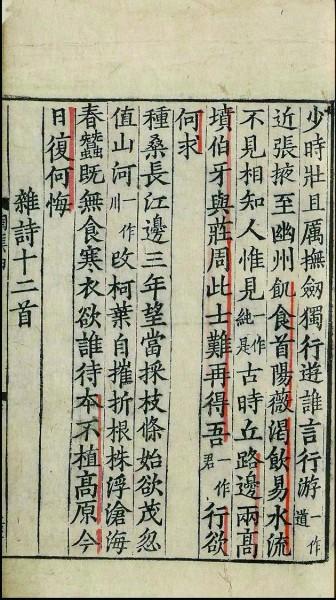 少時壯且厲撫劔獨行遊誰言行游一作道
近張掖至幽州飢食首陽薇渴飲易水流
不見相知人惟見一作純是古時丘路邊兩高
墳伯牙與莊周此士難再得吾一作君行欲
何求
種桑長江邊三年望當採枝條始欲茂忽
值山河一作川攺柯葉自摧折根株浮滄海
春蠶既無食寒衣欲誰待本不植高原今
日復何悔
雜詩十二首